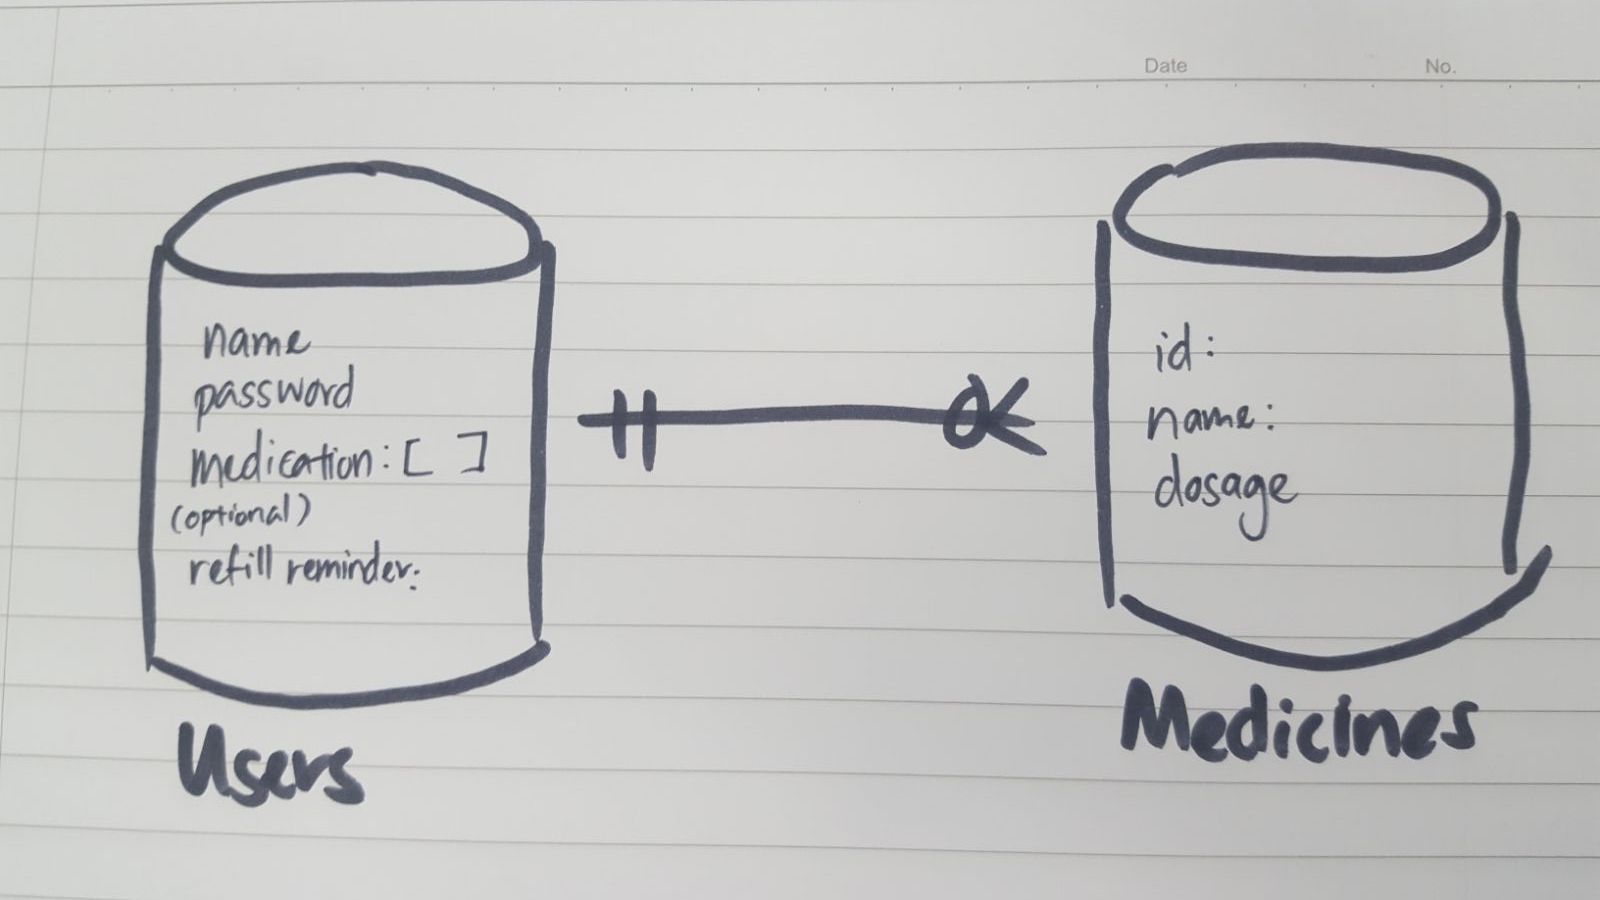 Date No.
name
password
medication: [ ]
(optional)
refill reminder:
Users
id:
name:
dosage
Medicines